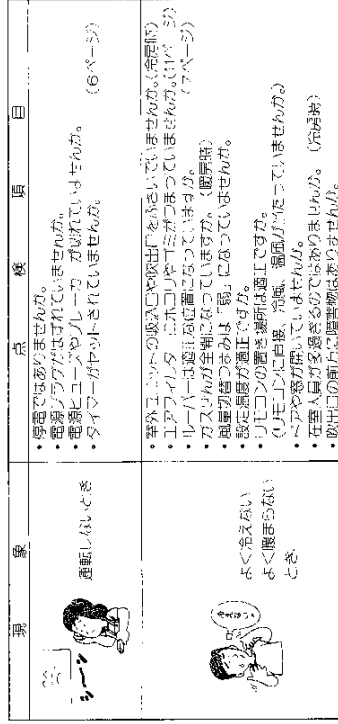 現象
点検項目
運転しないとき
・停電ではありませんか。
・電源プラグがはずれていませんか。
・電源ヒューズやブレーカーが切れていませんか。
・タイマーがセットされていませんか。 (6ページ)
シーン
よく冷えない
よく暖まらない
とき。
・室外ユニットの吸込口や吹出口をふさいでいませんか。(冷房時)
・エアフィルターにホコリやゴミがつまっていませんか。(11ページ)
・ルーバーは適正な位置になっていますか。 (7ページ)
・ガスせんが全開になっていますか。(暖房時)
・風量切替つまみは「弱」になっていませんか。
・設定温度が適正ですか。
・リモコンの置き場所は適正ですか。
(リモコンに直接、冷風、温風が当たっていませんか。)
・ドアや窓が開いていませんか。
・在室人員が多過ぎるのではありませんか。 (冷房時)
・吹出口の前方に障害物はありませんか。